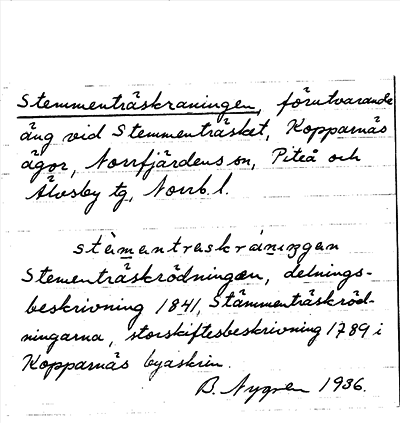 Stemmenträskraningen, förutvarande
äng vid Stemmenträsket, Kopparnäs
ägor, Norrfjärdens sn, Piteå och
Älvsby tg, Norrb. l.
stämantraskräniŋgan
Stementräskrödningen, delnings-
beskrivning 1841, Stämmenträskröd-
ningarna, storskiftesbeskrivning 1789 i
Kopparnäs byaskrin.
B. Nygren 1936.